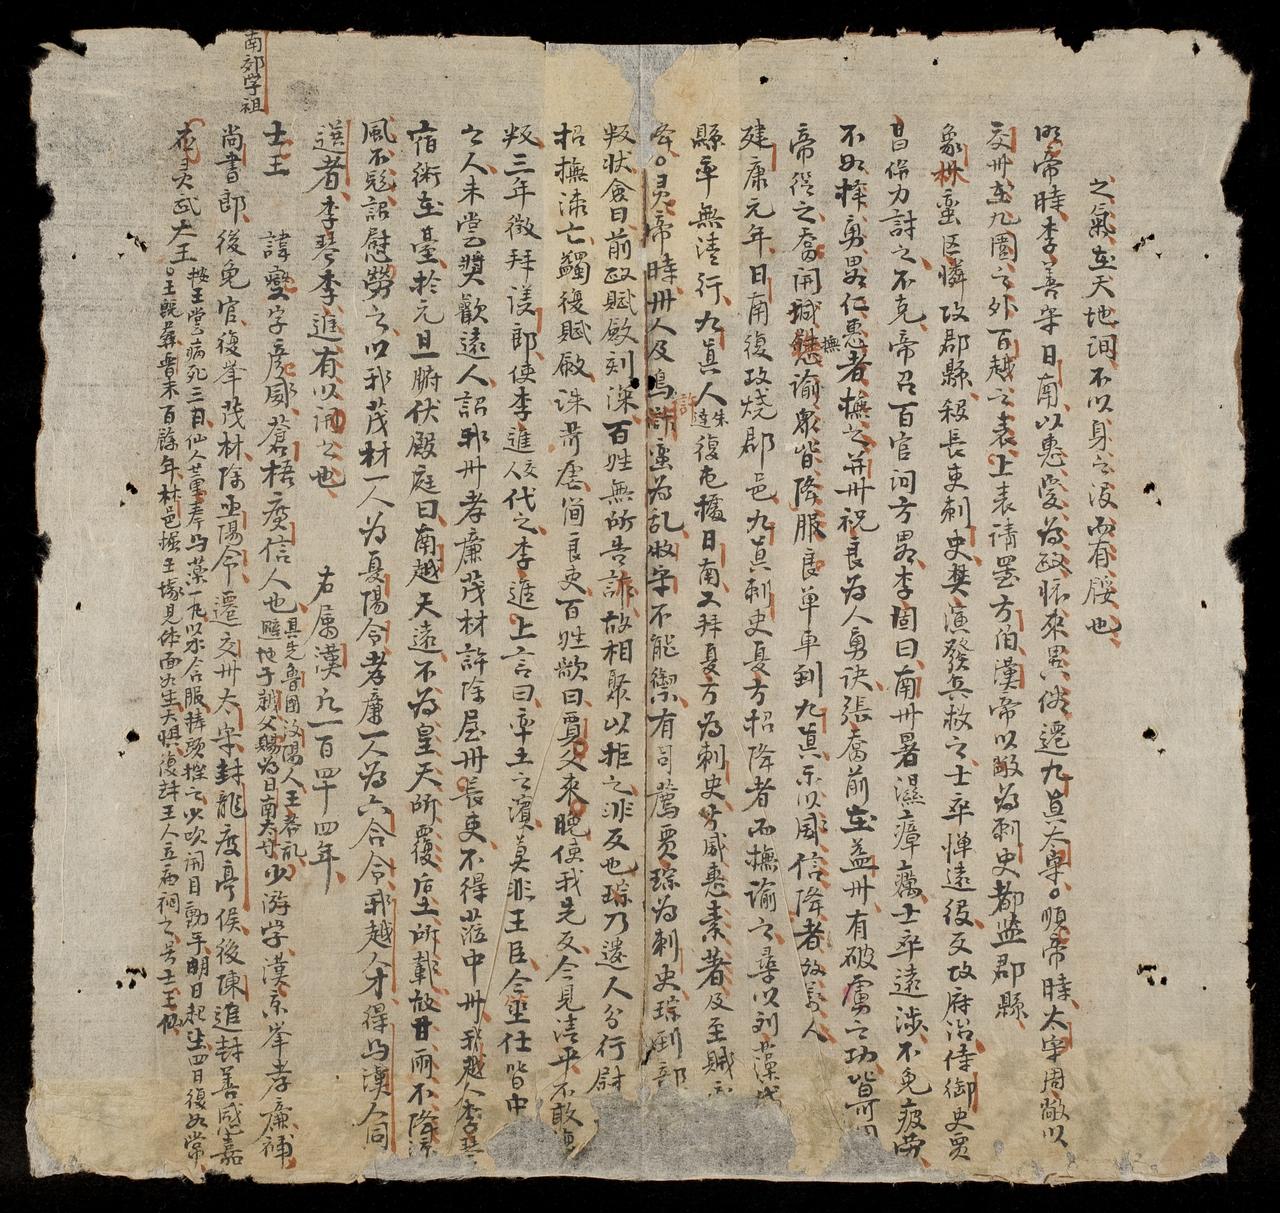 之氣在天地间不以身之没而有餒也
明帝時李善守日南以惠爱為政怀來異俗遷九真太守。順帝時太守周敞以
交州在九圍之外百越之表上表請置方伯漢帝以敞為刺史都监郡縣
象州蛮区憐攻郡縣殺長吏刺史樊演發兵救之士卒惮遠役反攻府治侍御史賈
昌併力討之不克帝召百官问方畧李固曰南州暑濕瘴癘士卒遠涉不免疲劳
不如擇勇畧仁惠者撫之并州祝良為人勇决張喬前在益州有破虜之功皆可
帝從之喬開城慰撫諭眾皆降服良单車到九真示以威信降者放萬人
建康元年日南復攻燒郡邑九真刺史夏方招降者而撫諭之
縣率無清行九真人朱達復屯據日南又拜夏方為刺史方威惠素著及至賊
降。灵帝時州人及烏滸蛮為乱牧守不能禦有司薦賈琮為刺史琮到部
叛状僉曰前政賦斂刻深百姓無所告訴故相聚以拒之非反也琮乃遣人分行尉
招撫流亡蠲復賦斂诛 虐简良吏百姓歌曰賈父來晚使我先反今見清平不敢復
叛三年徵拜議郎使李進交人代之李進上言曰率土之濱莫非王臣今登仕皆中
之人未甞奬勸遠人詔我州孝廉茂材許除属州長吏不得蒞中州我越人李琴
宿衛在臺於元旦腑伏殿庭曰南越天遠不為皇天所覆后土所載故甘雨不降凉
風不飃詔慰勞之以我茂材一人為夏陽令孝廉一人為六合令我越人才得与漢人同
選者李琴李進有以開之也
右属漢凡一百四十四年
士王 諱燮字彦威蒼梧廣信人也其先魯國汶陽人王莽乱避地于越父賜為日南太守少游学漢京举孝廉補
南郊学祖
尚書郎後免官復举茂林除巫陽令遷交州太守封龍度亭侯後陳進封善感嘉
应灵武大王按王甞病死三日仙人董奉与藥一丸以水含服捧頭摇之少吹開目動手明日起坐四日復如常
。王既葬晋末百餘年林邑掘王塚見体面如生大惧復封王人立庙祠之号士王仙